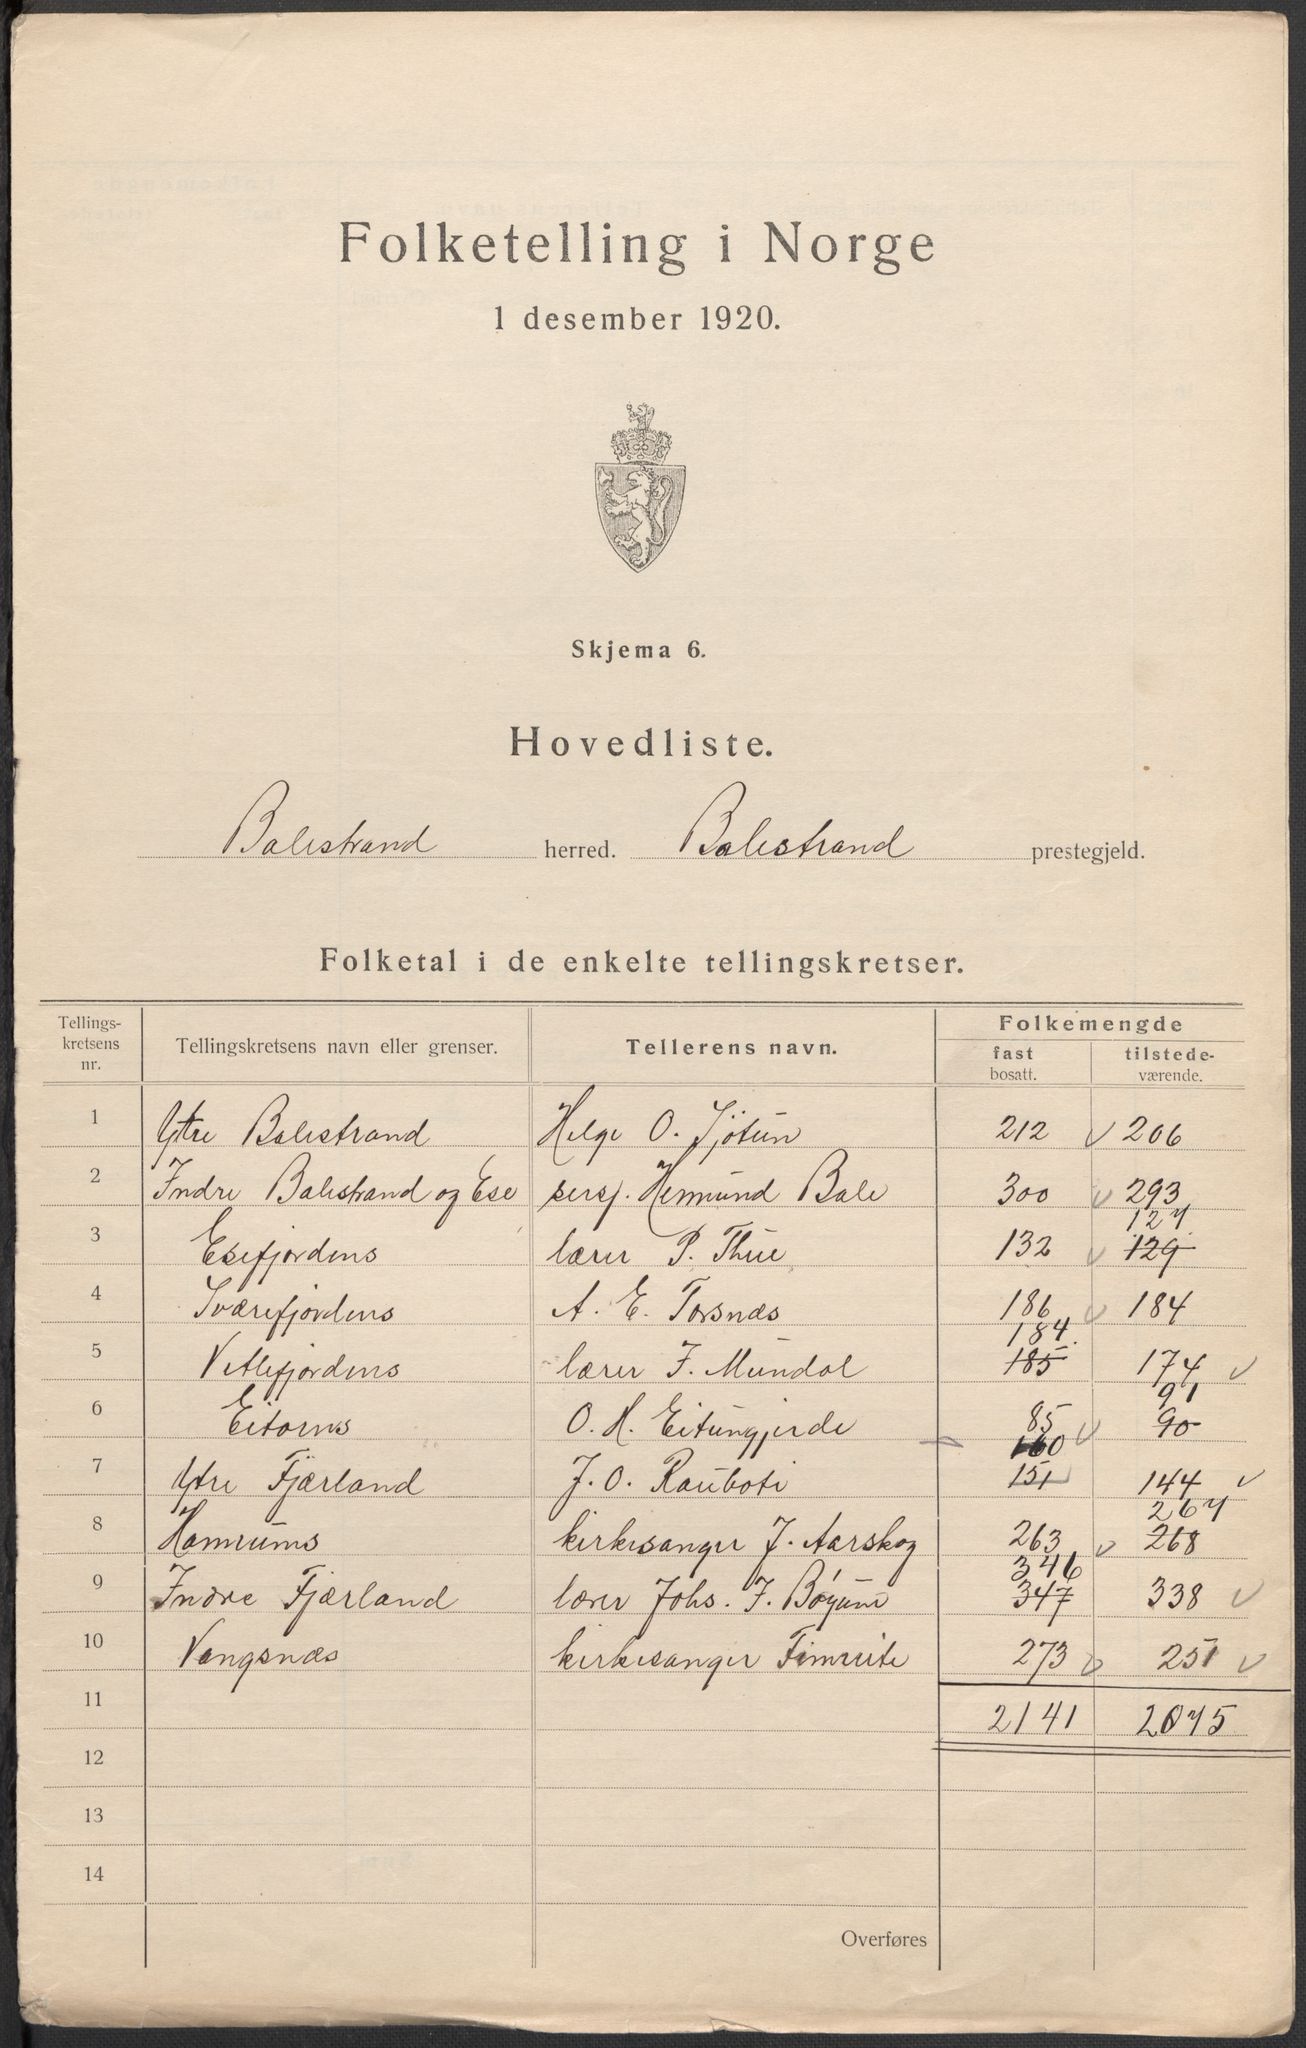 Folketelling i Norge
1 desember 1920.
Skjema 6.
Hovedliste.
Balestrand herred. Balestrand prestegjeld.
Folketal i de enkelte tellingskretser.
Tellings-kretsens nr. Tellingskretsens navn eller grenser. Tellerens navn. Folkemengde
fast bosatt. tilstede-værende.
1 Ytre Balestrand Helge O. Tjötun 212 206
2 Indre Balestrand og Ese sersj. Hermund Bale 300 293
127
3 Esefjordens lærer P. Thue 132 129
4 Sværefjordens A. E. Torsnæs 186 184
184
5 Vetlefjordens lærer J. Mundal 185 174
91
6 Eitorns O. H. Eitungjerde 85 90
160
7 Ytre Fjærland J. O. Rauboti 151 144
267
8 Hamrums kirkesanger J. Aarskog 263 268
346
9 Indre Fjærland lærer Johs. J. Bøyum 347 338
10 Vangsnæs kirkesanger Fimreite 273 251
11 2141 2075
12
13
14
Overføres